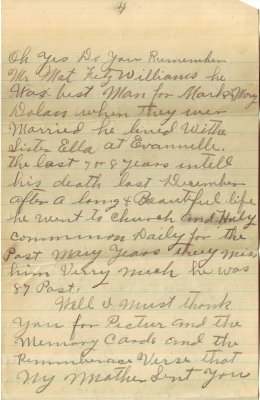 4
Oh Yes Do You Remember
Mr Mat Fitz Williams he
Was best Man for Mark & Mary
Dolan when they wer
Married he lived Withe
Sister Ella at Evanville
the last 7 or 8 years intell
his death last December
after a long & Beautiful life
he went to Church and Holy
communion Daily for the
Past Many Years they miss
him Verry much he was
87 Past.
Well I Must thank
You for Pictur and the
Memory Cards and the
Rememberace Verse that
My Mother Sent You